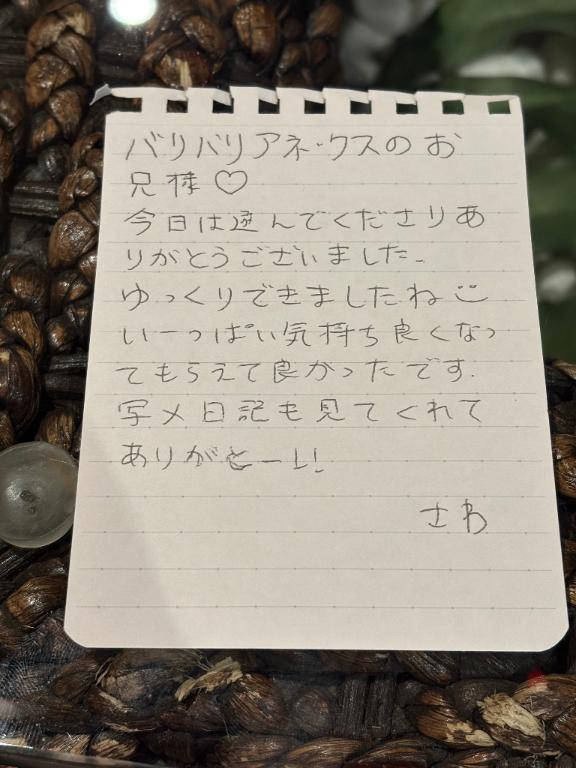 バリバリアネックスのお
兄様♡
今日は選んでくださりあ
りがとうございました。
ゆっくりできましたね
いーっぱい気持ち良くなっ
てもらえて良かったです.
写メ日記も見てくれて
ありがとーー!!
さわ